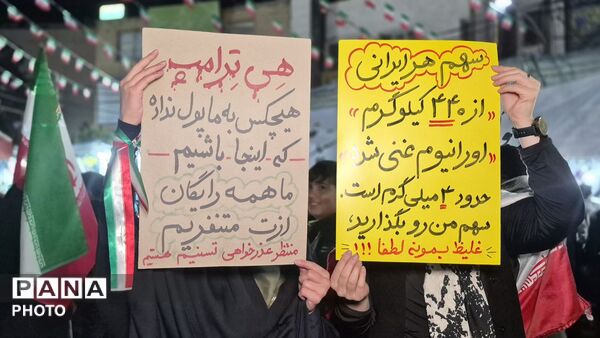 سهم هر ایرانی
"از ۴۴۰ کیلوگرم
اورانیوم غنی شده"
حدود ۴ میلی گرم است.
سهم من رو بگذارید،
غلیظ بمونه لطفا !!!
هی تِرامپ
هیچکس به ما پول نداده
- که اینجا - باشیم -
ما همه رایگان
ازت متنفریم
منتظر عذرخواهی تسنیم هستیم
PANA
PHOTO